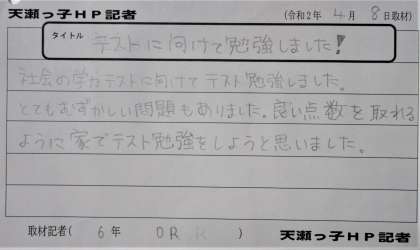 天瀬っ子HP記者 (令和2年 4月 8日取材)
タイトル テストに向けて勉強しました!
社会の学力テストに向けてテスト勉強しました。
とてもむずかしい問題もありました。良い点数を取れる
ように家でテスト勉強をしようと思いました。
取材記者( 6年 OR ) 天瀬っ子HP記者